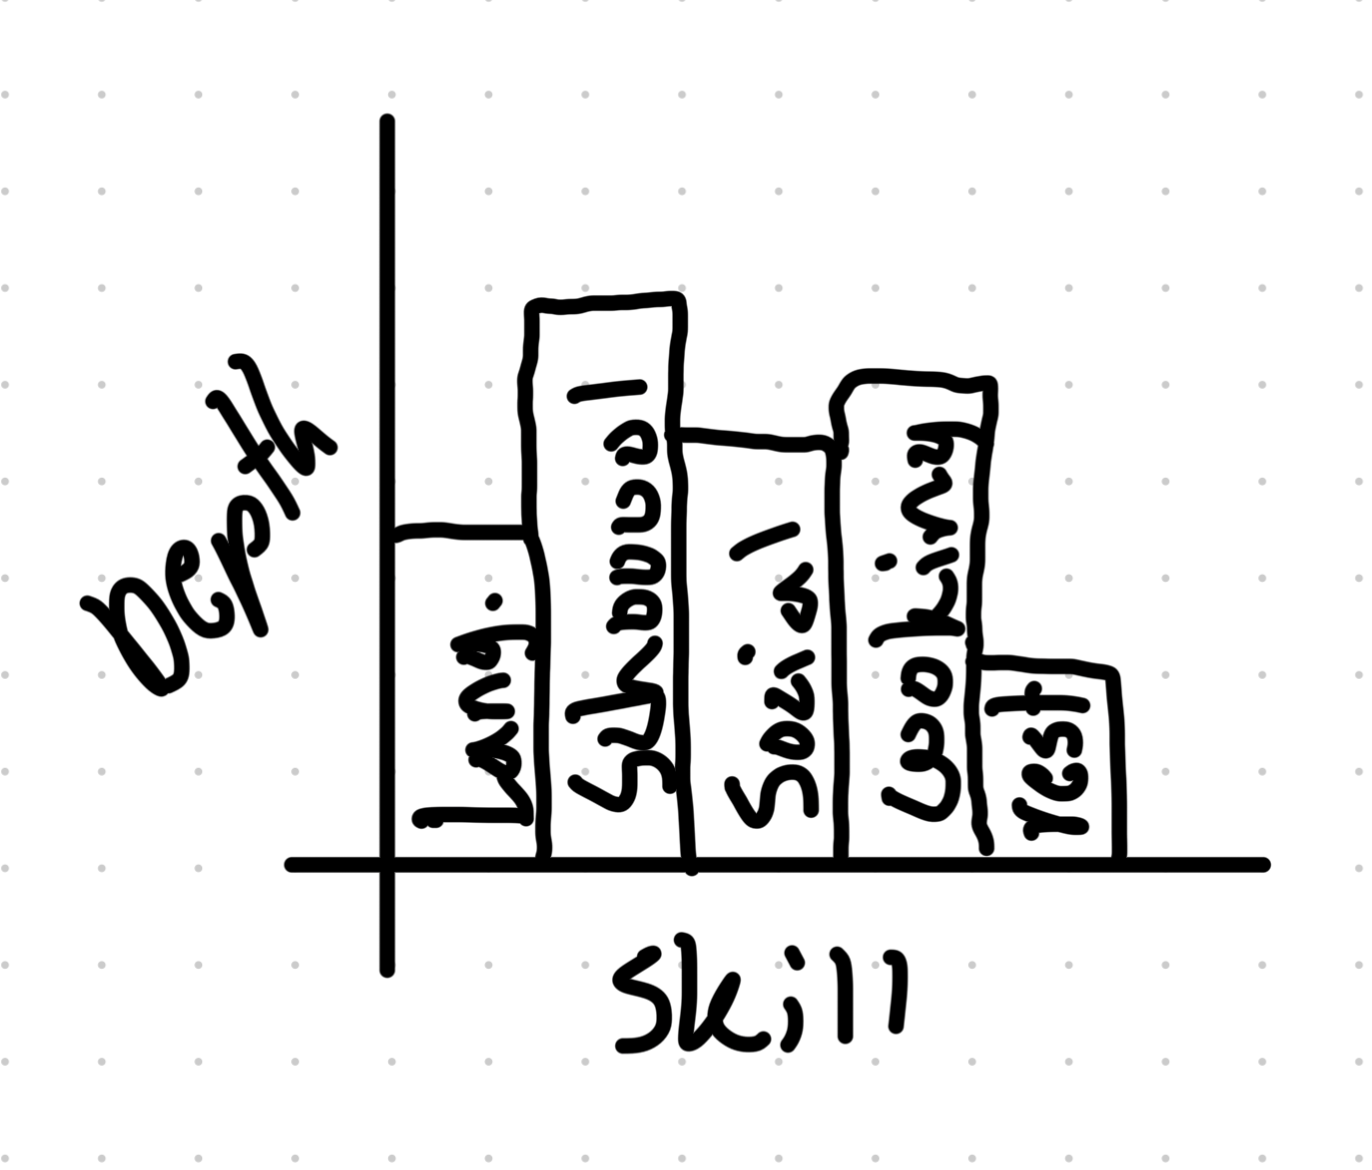 Depth
Lang.
Schooool
Social
Cooking
rest
Skill